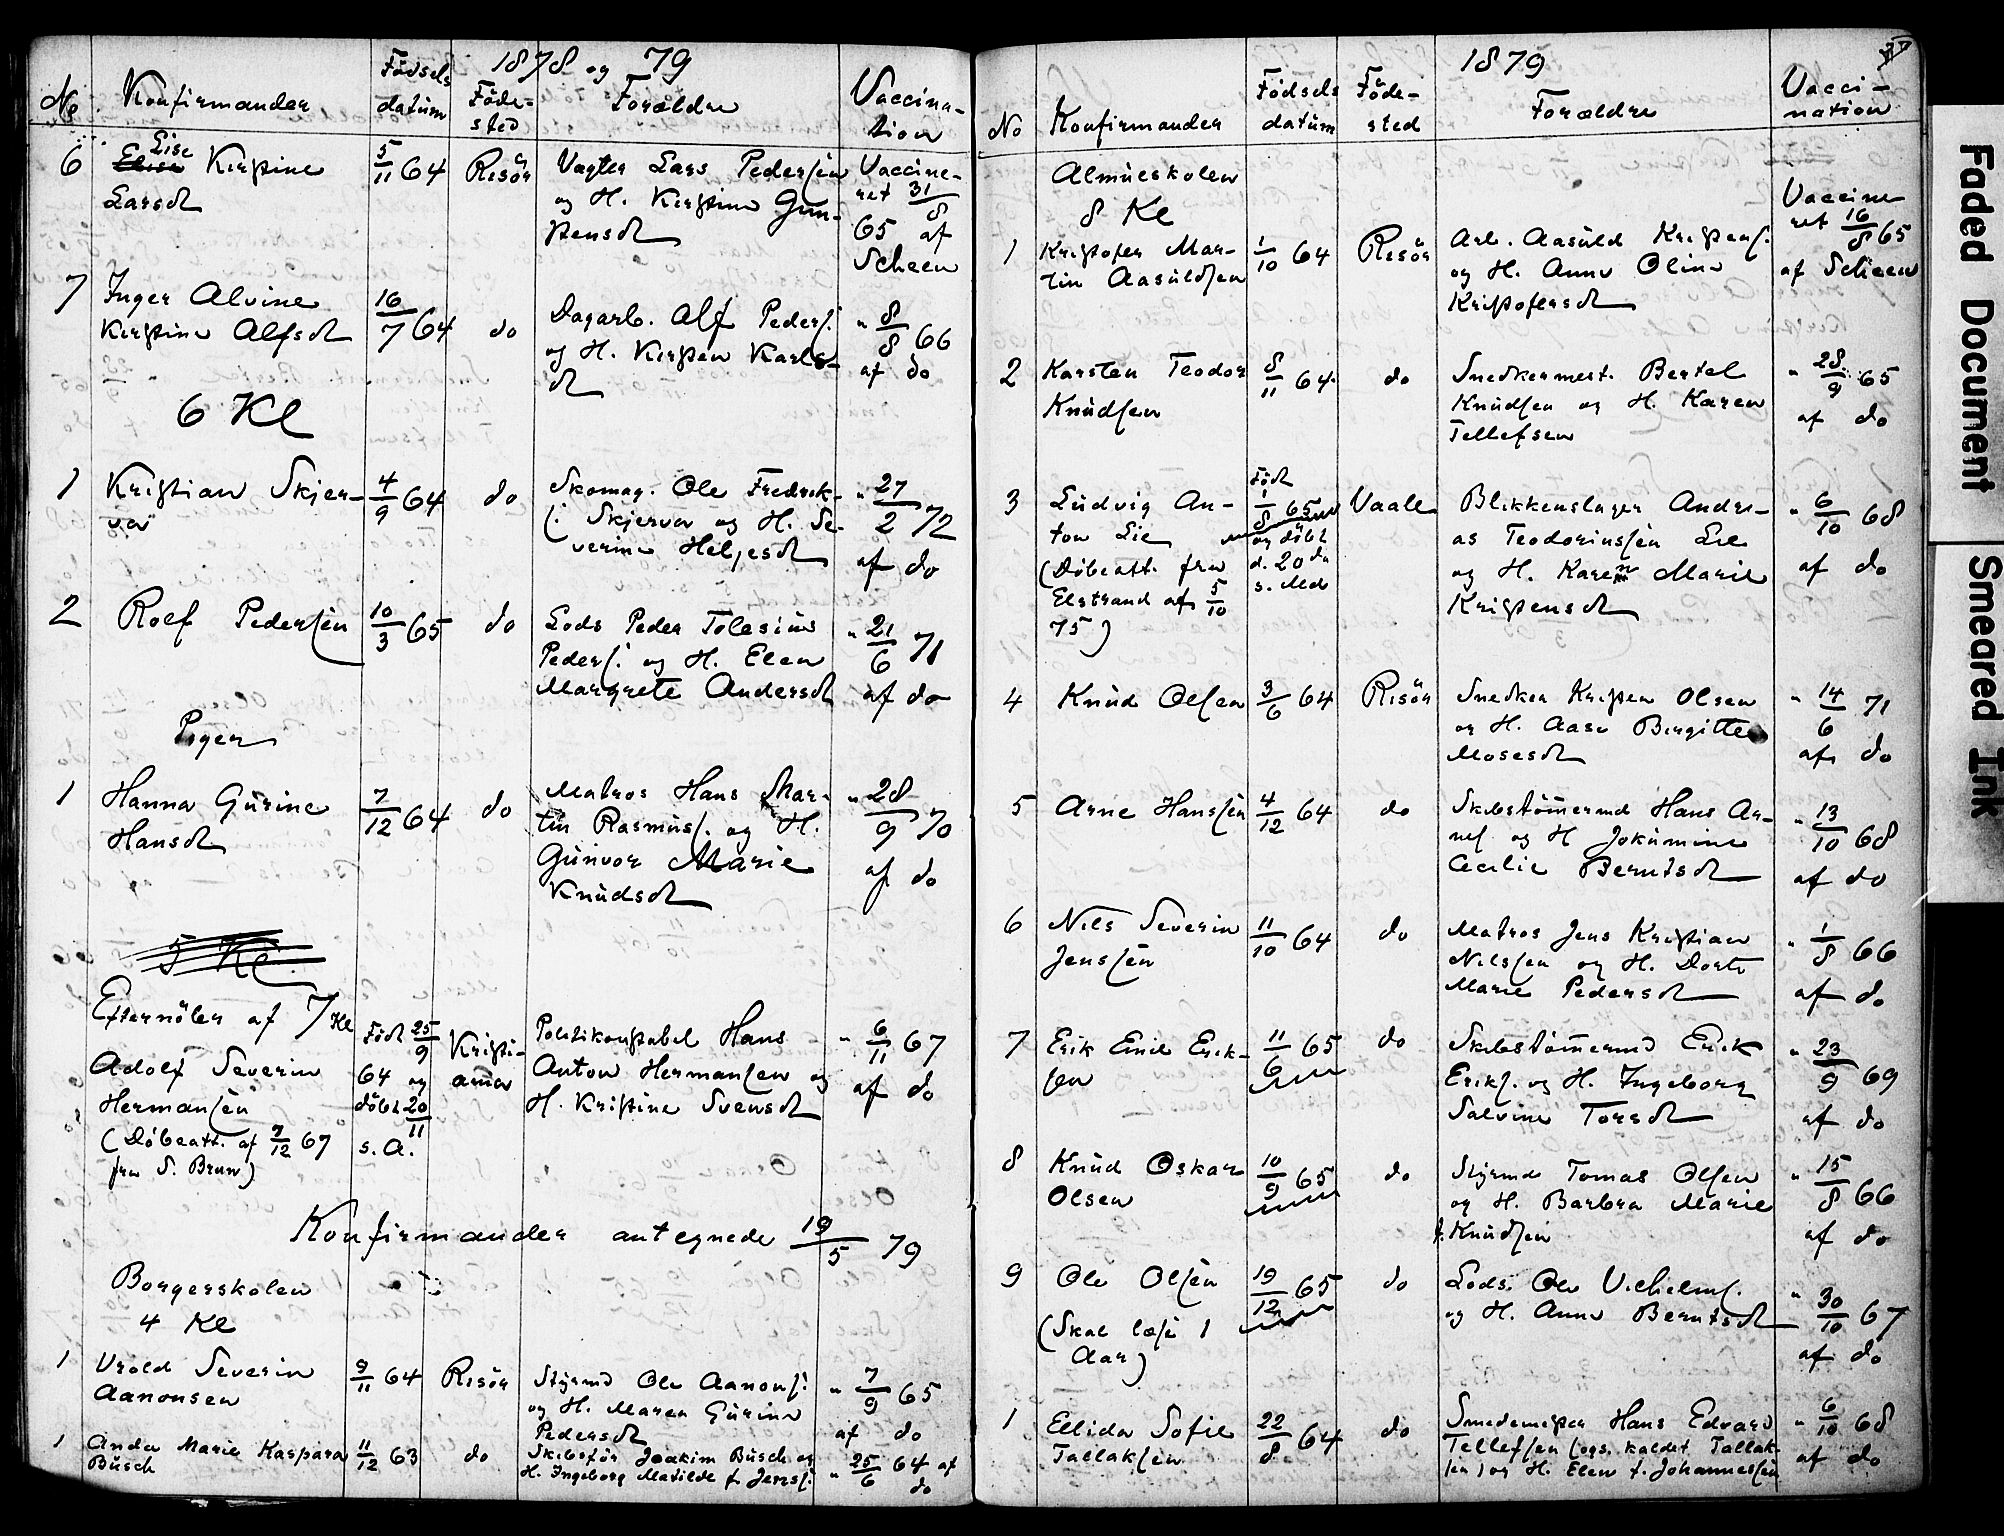 1878 og 79
No
Konfirmander
Fødsels
datum
Føde-
sted
Forældre
Vaccina-
tion
6
Lise
Elise Kirstine
Larsdt
5/11 64
Risör
Vagter Lars Pedersen
og H. Kirstine Gun-
stensdt
Vaccine-
ret 31/8
65 af
Scheen
7
Inger Alvine
Kirstine Alfsdt
16/7 64
do
Dagarb. Alf Peders.
og H. Kirsten Karls-
dt
" 8/8 66
af do
6 Kl
1
Kristian Skjer-
va
4/9 64
do
Skomag. Ole Fredrik-
s. Skjerva og H. Se-
verine Helgesdt
" 27/2 72
af do
2
Rolf Pedersen
10/3 65
do
Lods Peder Tolesius
Peders. og H. Elen
Margrete Andersdt
" 21/6 71
af do
Piger
1
Hanna Gurine
Hansdt
7/12 64
do
Matros Hans Mar-
tin Rasmus. og H.
Gunvor Marie
Knudsdt
" 28/9 70
af do
5 Kl.
Efternøler af 7 Kl
Adolf Severin
Hermansen
(Døbeatt. af 7/12 67
fra S. Brun)
Født 25/9
64 og
döbt 20/11
s. A.
Kristi-
ania
Politikonstabel Hans
Anton Hermansen og
H. Kristine Svensdt
" 6/11 67
af do
Konfirmander antegnede 19/5 79
Borgerskolen
4 Kl
1
Vrold Severin
Aanonsen
9/11 64
Risör
Styrmd Ole Aanons.
og H. Maren Gurine
Pedersdt
" 7/9 65
af do
1
Anda Marie Kaspara
Busch
11/12 63
do
Skibsfør Joakim Busch og
H. Ingeborg Matilde f. Jenss.
" 25/6 64 af
do
1879
No
Konfirmander
Fødsels
datum
Føde-
sted
Forældre
Vacci-
nation
Almueskolen
8 Kl
1
Kristofer Mar-
tin Aasuldsen
1/10 64
Risör
Arb. Aasuld Kristens.
og H. Anne Oline
Kristofersdt
Vaccine
ret 16/8 65
af Scheen
2
Karsten Teodor
Knudsen
8/11 64
do
Snedkermest. Bertel
Knudsen og H. Karen
Tellefsen
" 28/9 65
af do
3
Ludvig An-
ton Lie
(Döbeatt. fra
Elstrand af 5/10
75)
Født
1/8 65
og döbt
d. 20 da
s. Md
Vaale
Blikkenslager Andre-
as Teodorinssen Lie
og H. Karen Marie
Kristensdt
" 6/10 68
af do
4
Knud Olsen
3/6 64
Risör
Snedker Kristen Olsen
og H. Aase Birgitte
Mosesdt
" 14/6 71
af do
5
Arne Hanssen
4/12 64
do
Skibstömermd Hans Ar-
nes. og H Jokumine
Cecilie Berntsdt
" 13/10 68
af do
6
Nils Severin
Jenssen
11/10 64
do
Matros Jens Kristian
Nilssen og H. Dorte
Marie Pedersdt
" 1/8 66
af do
7
Erik Emil Erik-
sen
11/6 65
do
Skibstömermd Erik
Eriks. og H. Ingeborg
Salvine Torsdt
" 23/9 69
af do
8
Knud Oskar
Olsen
10/9 65
do
Styrmd Tomas Olsen
og H. Barbra Marie
f. Knudsen
" 15/8 66
af do
9
Ole Olsen
(Skal læse 1
Aar)
19/12 65
do
Lods. Ole Vilhelms.
og H. Anne Berntsdt
" 30/10 67
af do
1
Ellida Sofie
Tallaksen
22/8 64
do
Smedemester Hans Edvard
Tellefsen (ogs. kaldet Tallak-
sen) og H. Elen f. Johannessen
" 6/10 68
af do
Faded Document
Smeared Ink